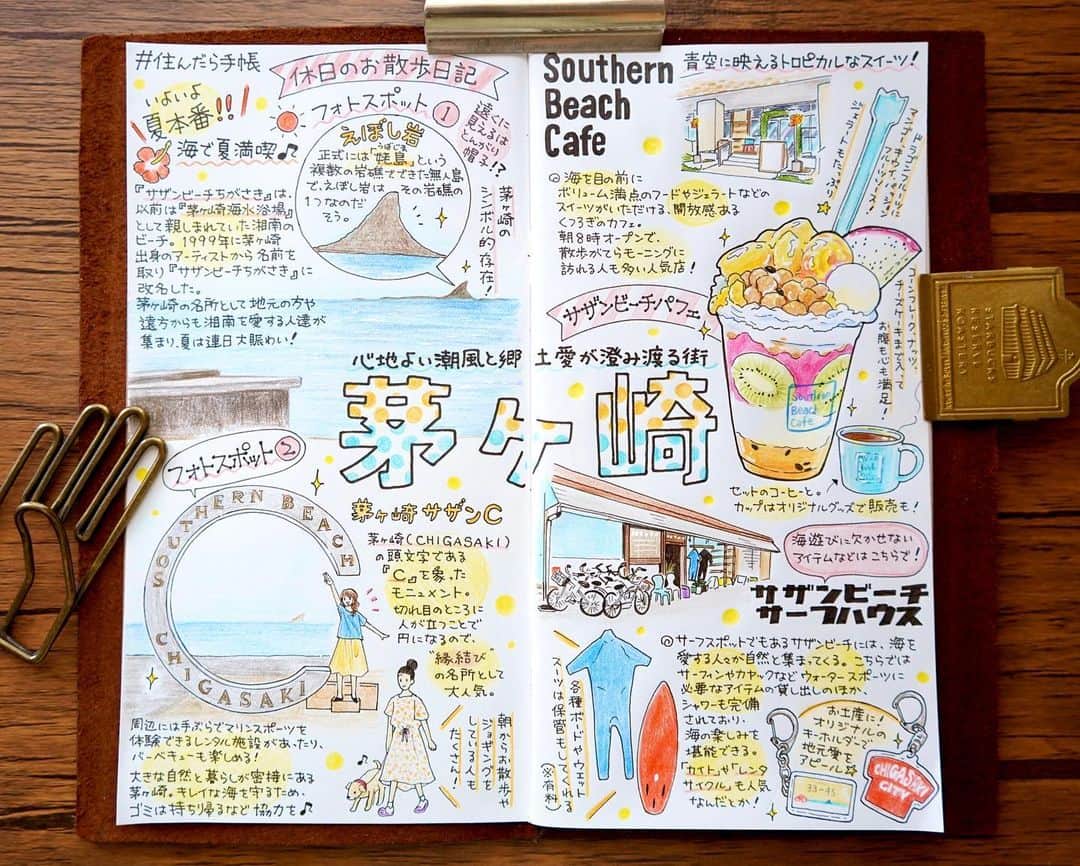 #住んだら手帳
休日のお散歩日記
いよいよ
夏本番!!
海で夏満喫♪
『サザンビーチちがさき』は、
以前は『茅ヶ崎海水浴場』
として親しまれていた湘南の
ビーチ。1999年に茅ヶ崎
出身のアーティストから名前を
取り『サザンビーチちがさき』に
改名した。
茅ヶ崎の名所として地元の方や
遠方からも湘南を愛する人達が
集まり、夏は連日大賑わい!
フォトスポット①
えぼし岩
正式には「姥島」という
うばじま
複数の岩礁でできた無人島
で、えぼし岩は その岩礁の
1つなのだ
そう。
遠くに
見えるは
とんがり
帽子!?
茅ヶ崎の
シンボル的存在!
心地よい潮風と郷土愛が澄み渡る街
茅ヶ崎
フォトスポット②
SOUTHERN BEACH
CHIGASAKI
茅ヶ崎サザンC
茅ヶ崎(CHIGASAKI)
の頭文字である
『C』を象った
モニュメント。
切れ目のところに
人が立つことで
円になるので、
"縁結び"
の名所として
大人気。
周辺には手ぶらでマリンスポーツを
体験できるレンタル施設があったり、
バーベキューも楽しめる!
大きな自然と暮らしが密接にある
茅ヶ崎。キレイな海を守るため、
ゴミは持ち帰るなど協力を♪
朝からお散歩や
ジョギングを
している人も
たくさん!
Southern
Beach
Cafe
青空に映えるトロピカルなスイーツ!
◎海を目の前に
ボリューム満点のフードやジェラートなどの
スイーツがいただける、開放感ある
くつろぎのカフェ。
朝8時オープンで、
散歩がてらモーニングに
訪れる人も多い人気店!
サザンビーチパフェ
マンゴー、ドラゴンフルーツに
キウイ、パイン…!
フルーツ
ジェラートもたっぷり
コーンフレーク、ナッツ、
チーズケーキまで入って
お腹も心も満足!
Southern
Beach
Cafe
セットのコーヒーと。
カップはオリジナルグッズで販売も!
海遊びに欠かせない
アイテムなどはこちらで!
サザンビーチ
サーフハウス
◎サーフスポットでもあるサザンビーチには、海を
愛する人々が自然と集まってくる。こちらでは
サーフィンやカヤックなどウォータースポーツに
必要なアイテムの貸し出しのほか、
シャワーも完備
されており、
海の楽しみを
堪能できる。
「カイト」や「レンタ
サイクル」も人気
なんだとか!
各種ボードやウェット
スーツは保管もしてくれる
(※有料)
お土産に!
オリジナルの
キーホルダーで
地元愛を
アピール☆
33-45
CHIGASAKI
CITY
STARBUCKS
RESERVE
ROASTERY